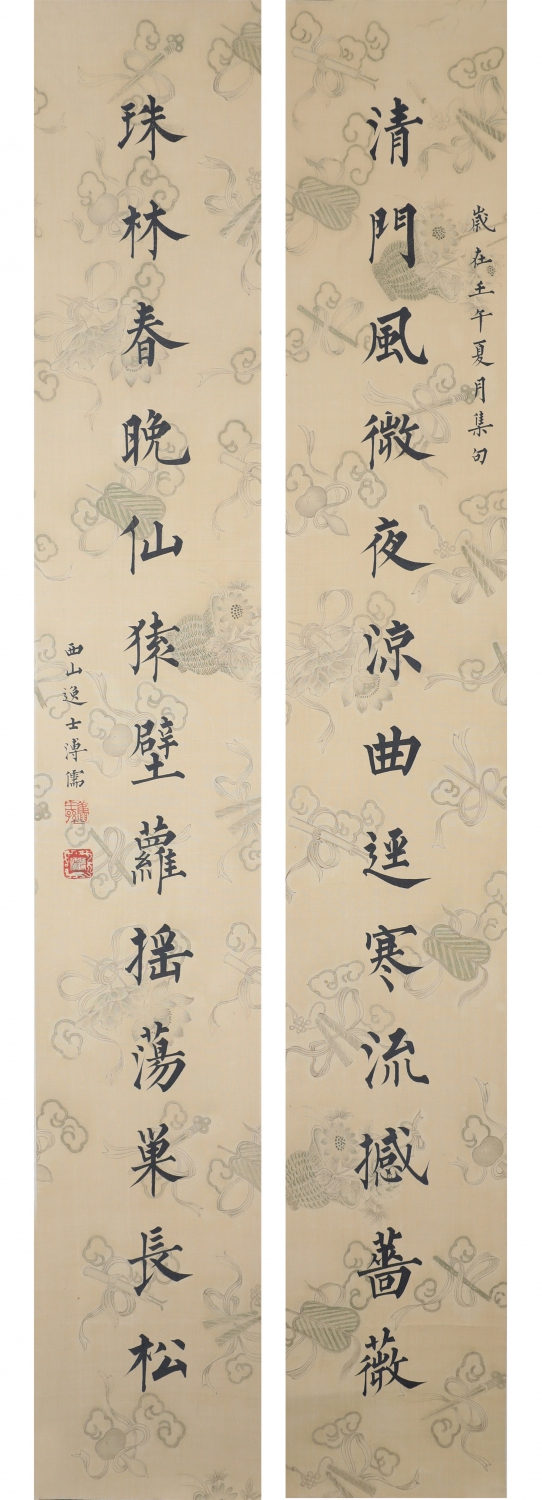 歲在壬午夏月集句
清門風微夜涼曲逕寒流撼薔薇
珠林春晚仙猿壁蘿揺蕩巢長松
西山逸士溥儒